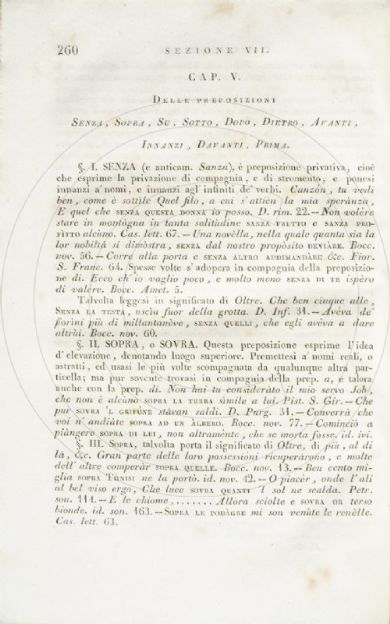 260 SEZIONE VII.
CAP. V.
DELLE PREPOSIZIONI
SENZA, SOPRA, SU, SOTTO, DOPO, DIETRO, AVANTI,
INNANZI, DAVANTI, PRIMA.
§. I. SENZA (e anticam. Sanza), è preposizione privativa, cioè
che esprime la privazione di compagnia, e di stromento, e ponesi
innanzi a' nomi, e innanzi agl' infiniti de' verbi. Canzón, tu vedi
ben, come è sottile Quel filo, a cui s'attien la mia speránza,
E quel che SENZA QUESTA DONNA io posso. D. rim. 22.—Non volére
stare in montágna in tanta solitúdine SENZA FRUTTO E SANZA PRO-
FITTO alcúno. Cas. lett. 67.—Una novella, nella quale quanto sia la
lor nobiltà si dimóstra, SENZA dal nostro propósito DEVIÁRE. Bocc.
nov. 56.—Corré alla porta e SENZA ALTRO ADDIMANDÁRE &c. Fior.
S. Franc. 64. Spesse volte s'adopera in compagnia della preposizio-
ne di. Ecco ch'io vaglio poco, e molto meno SENZA DI TE ispéro
di valére. Bocc. Amet. 5.
Talvolta leggesi in significato di Oltre. Che ben cinque alle,
SENZA LA TESTA, uscía fuor della grotta. D. Inf. 31.—Avéva de'
fiorini più di millantanóve, SENZA QUELLI, che egli avéva a dare
altrúi. Bocc. nov. 60.
§. II. SOPRA, o SOVRA. Questa preposizione esprime l'idea
d'elevazione, denotando luogo superiore. Premettesi a' nomi reali, o
astratti, ed usasi le più volte scompagnata da qualunque altra par-
ticella; ma pur sovente trovasi in compagnia della prep. a, e talora
anche con la prep. di. Non hai tu considerato il mio servo Job,
che non è alcúno SOPRA LA TERRA símile a lui. Pist. S. Gir.—Che
pur SOVRA 'L GRIFÓNE stavan saldi. D. Purg. 31.—Converrà che
voi n'andiáte SOPRA AD UN ÁLBERO. Bocc. nov. 77.—Cominciò a
piángere SOPRA DI LEI, non altraménte, che se morta fosse. id. ivi.
§. III. Sopra, talvolta porta il significato di Oltre, di più, al di
là, &c. Gran parte delle loro possessióni ricuperárono, e molte
dell' altre comperár SOPRA QUELLE. Bocc. nov. 13.—Ben cento mi-
glia SOPRA TÚNISI ne la portò. id. nov. 42.—O piacér, onde l'ali
al bel viso ergo, Che luce SOVRA QUANTI 'l sol ne scalda. Petr.
son. 111.—E le chiome,....... Allora sciolte e SOVRA OR terso
bionde. id. son. 163.—SOPRA LE PODÁGRE mi son venúte le renélle.
Cas. lett. 63.